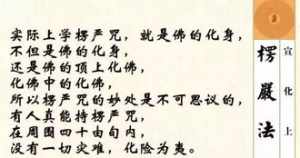 实际上学楞严咒，就是佛的化身，
不但是佛的化身，
还是佛的顶上化佛，
化佛中的化佛，
所以楞严咒的妙处是不可思议的，
有人真能持楞严咒，
在周围四十由旬内，
没有一切灾难，化险为夷。
楞嚴法
宣化上